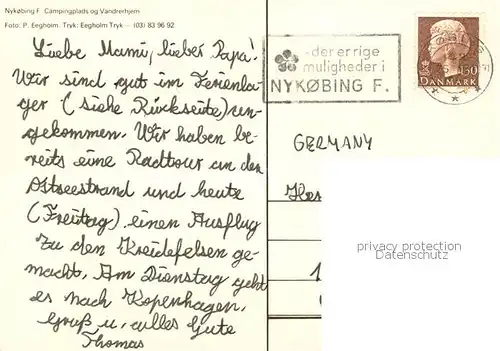 Nykøbing F. Campingplads og Vandrerhjem
Foto: P. Eegholm. Tryk: Eegholm Tryk — (03) 83 96 92
Liebe Mami, lieber Papa!
Wir sind gut im Ferienla-
ger (siehe Rückseite) an-
gekommen. Wir haben be-
reits eine Radtour an den
Ostseestrand und heute
(Freitag) einen Ausflug
zu den Kreidefelsen ge-
macht. Am Dienstag geht
es nach Kopenhagen.
Gruß u. alles Gute
Thomas
- der er rige
muligheder i
NYKØBING F.
130
DANMARK
GERMANY
privacy protection
Datenschutz